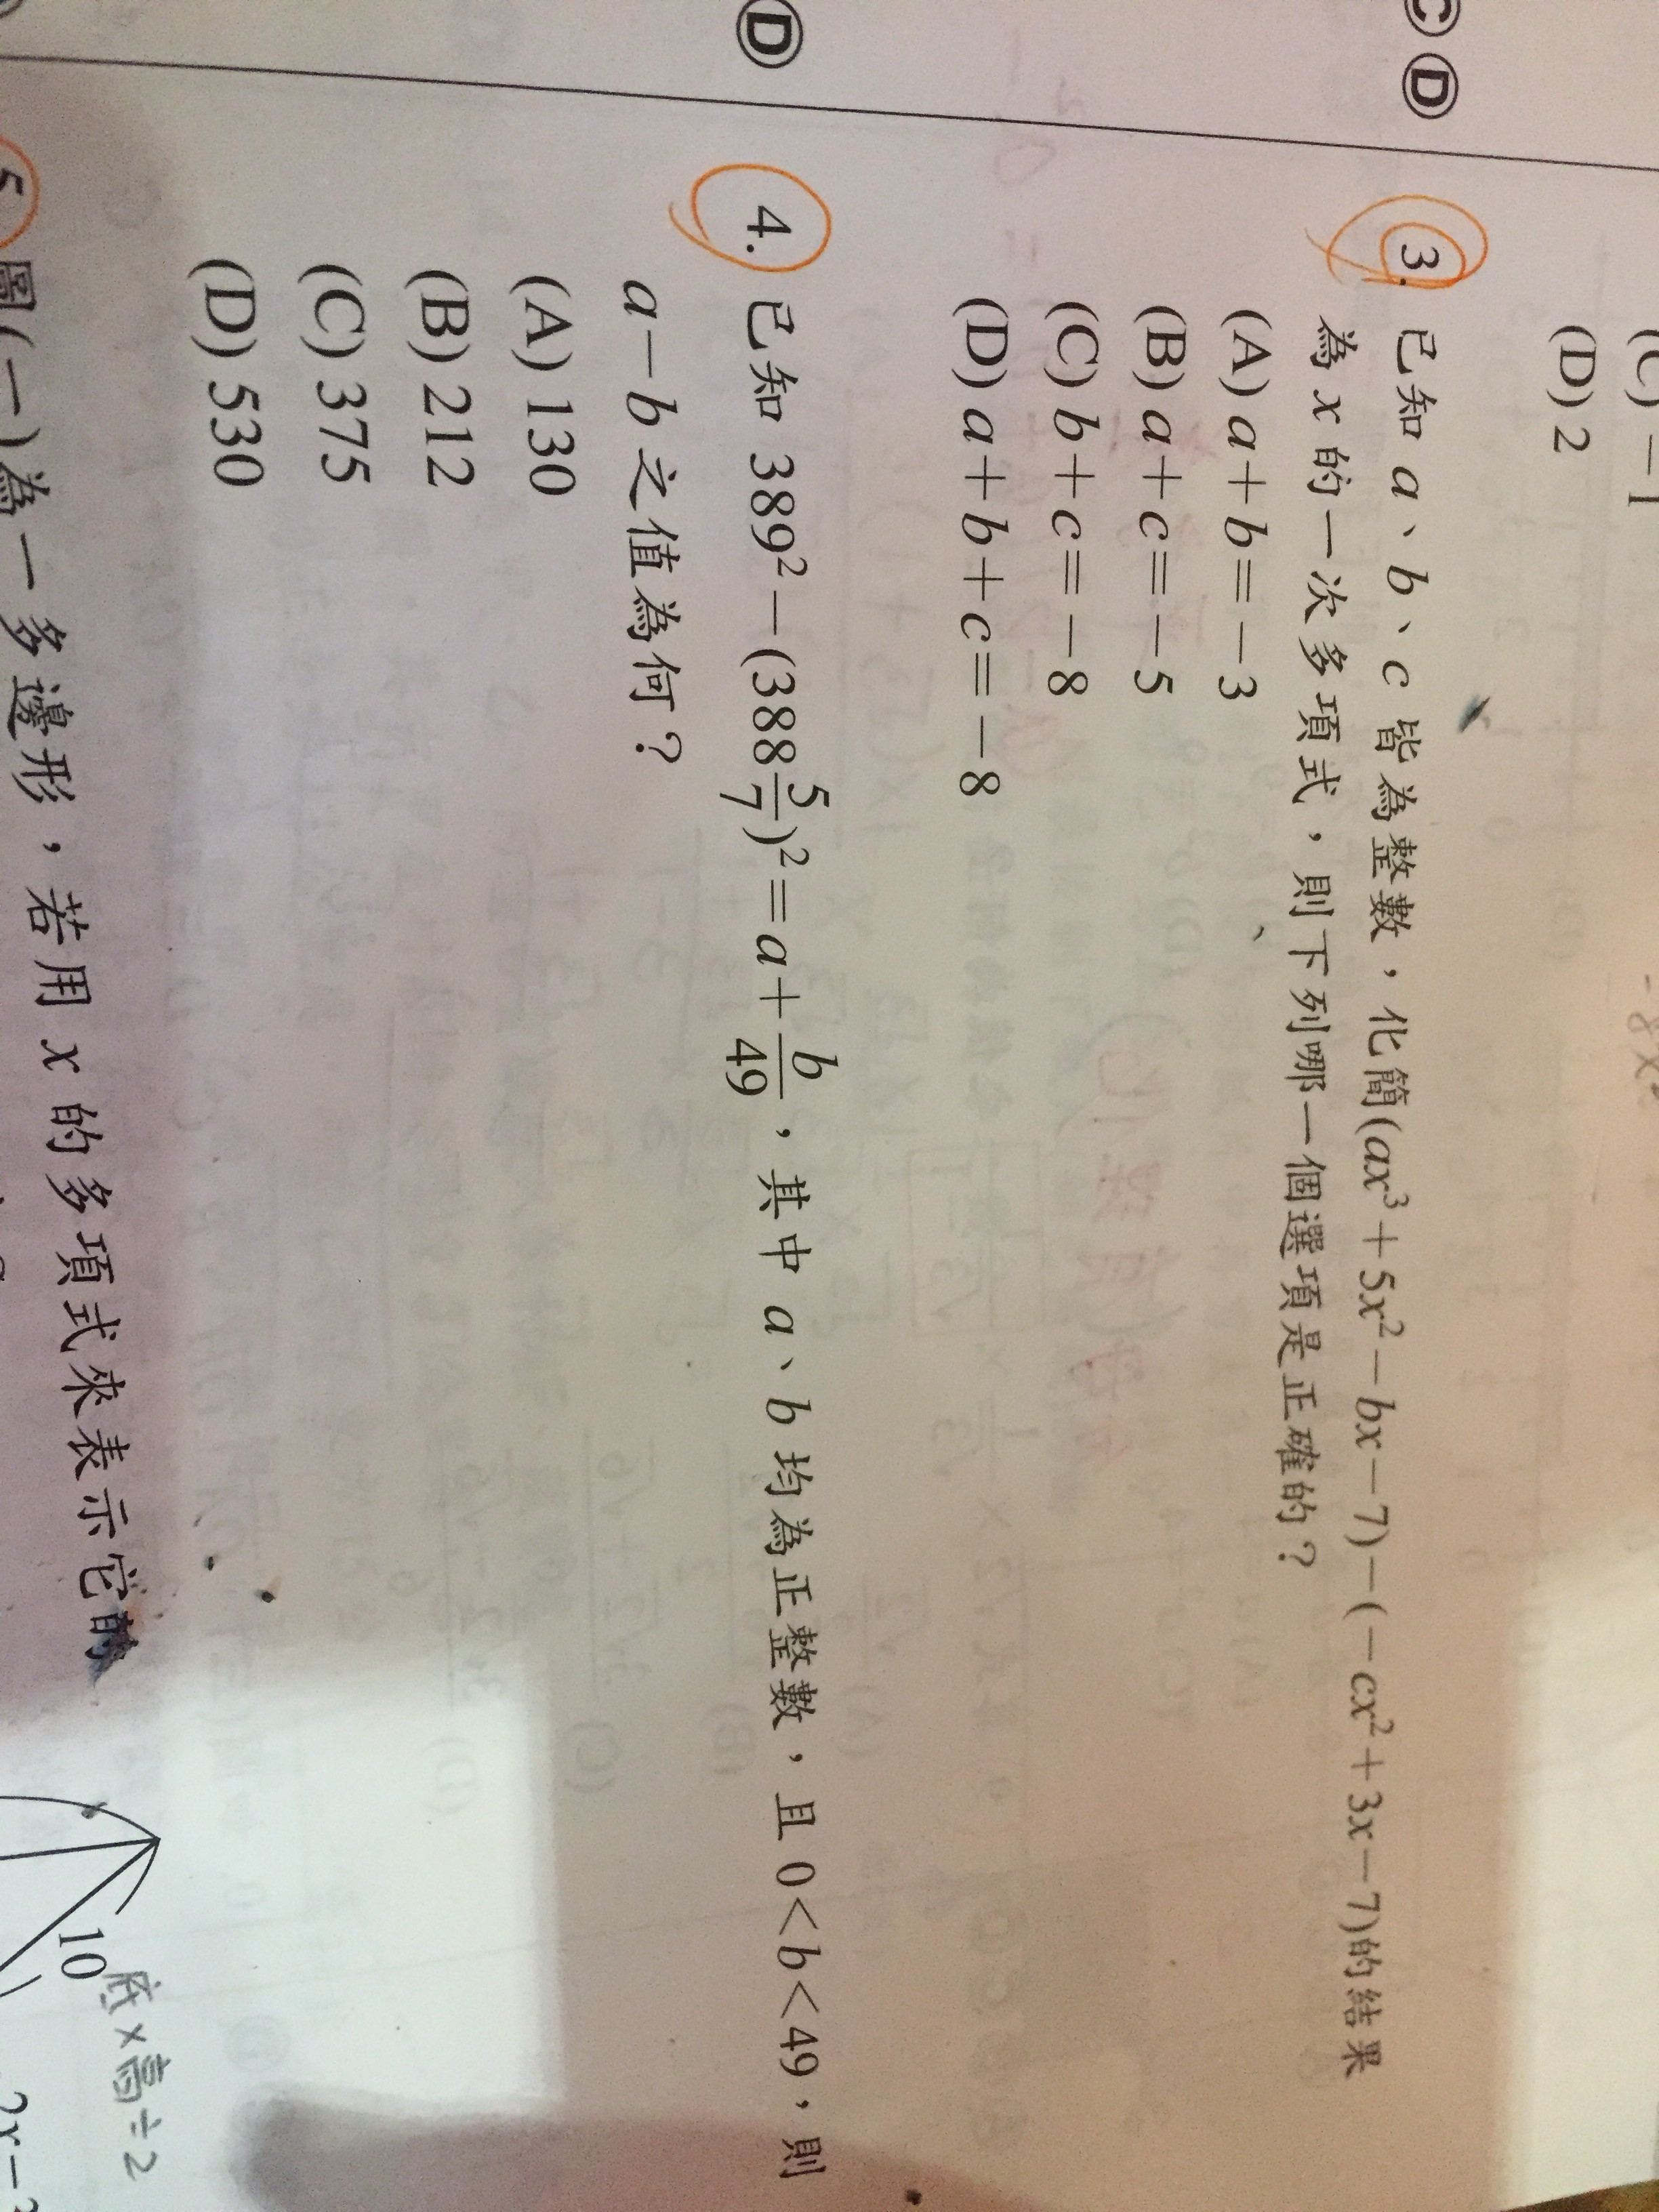 (D) 2
3. 已知 a、b、c 皆為整數,化簡(ax³+5x²-bx-7)-(-cx²+3x-7)的結果
為 x 的一次多項式,則下列哪一個選項是正確的?
(A) a+b=-3
(B) a+c=-5
(C) b+c=-8
(D) a+b+c=-8
D
4. 已知 389²-(388 5/7)²=a+b/49,其中 a、b 均為正整數,且 0<b<49,則
a-b 之值為何?
(A) 130
(B) 212
(C) 375
(D) 530
D
5 圖(一)為一多邊形,若用 x 的多項式來表示它的
10
底×高÷2